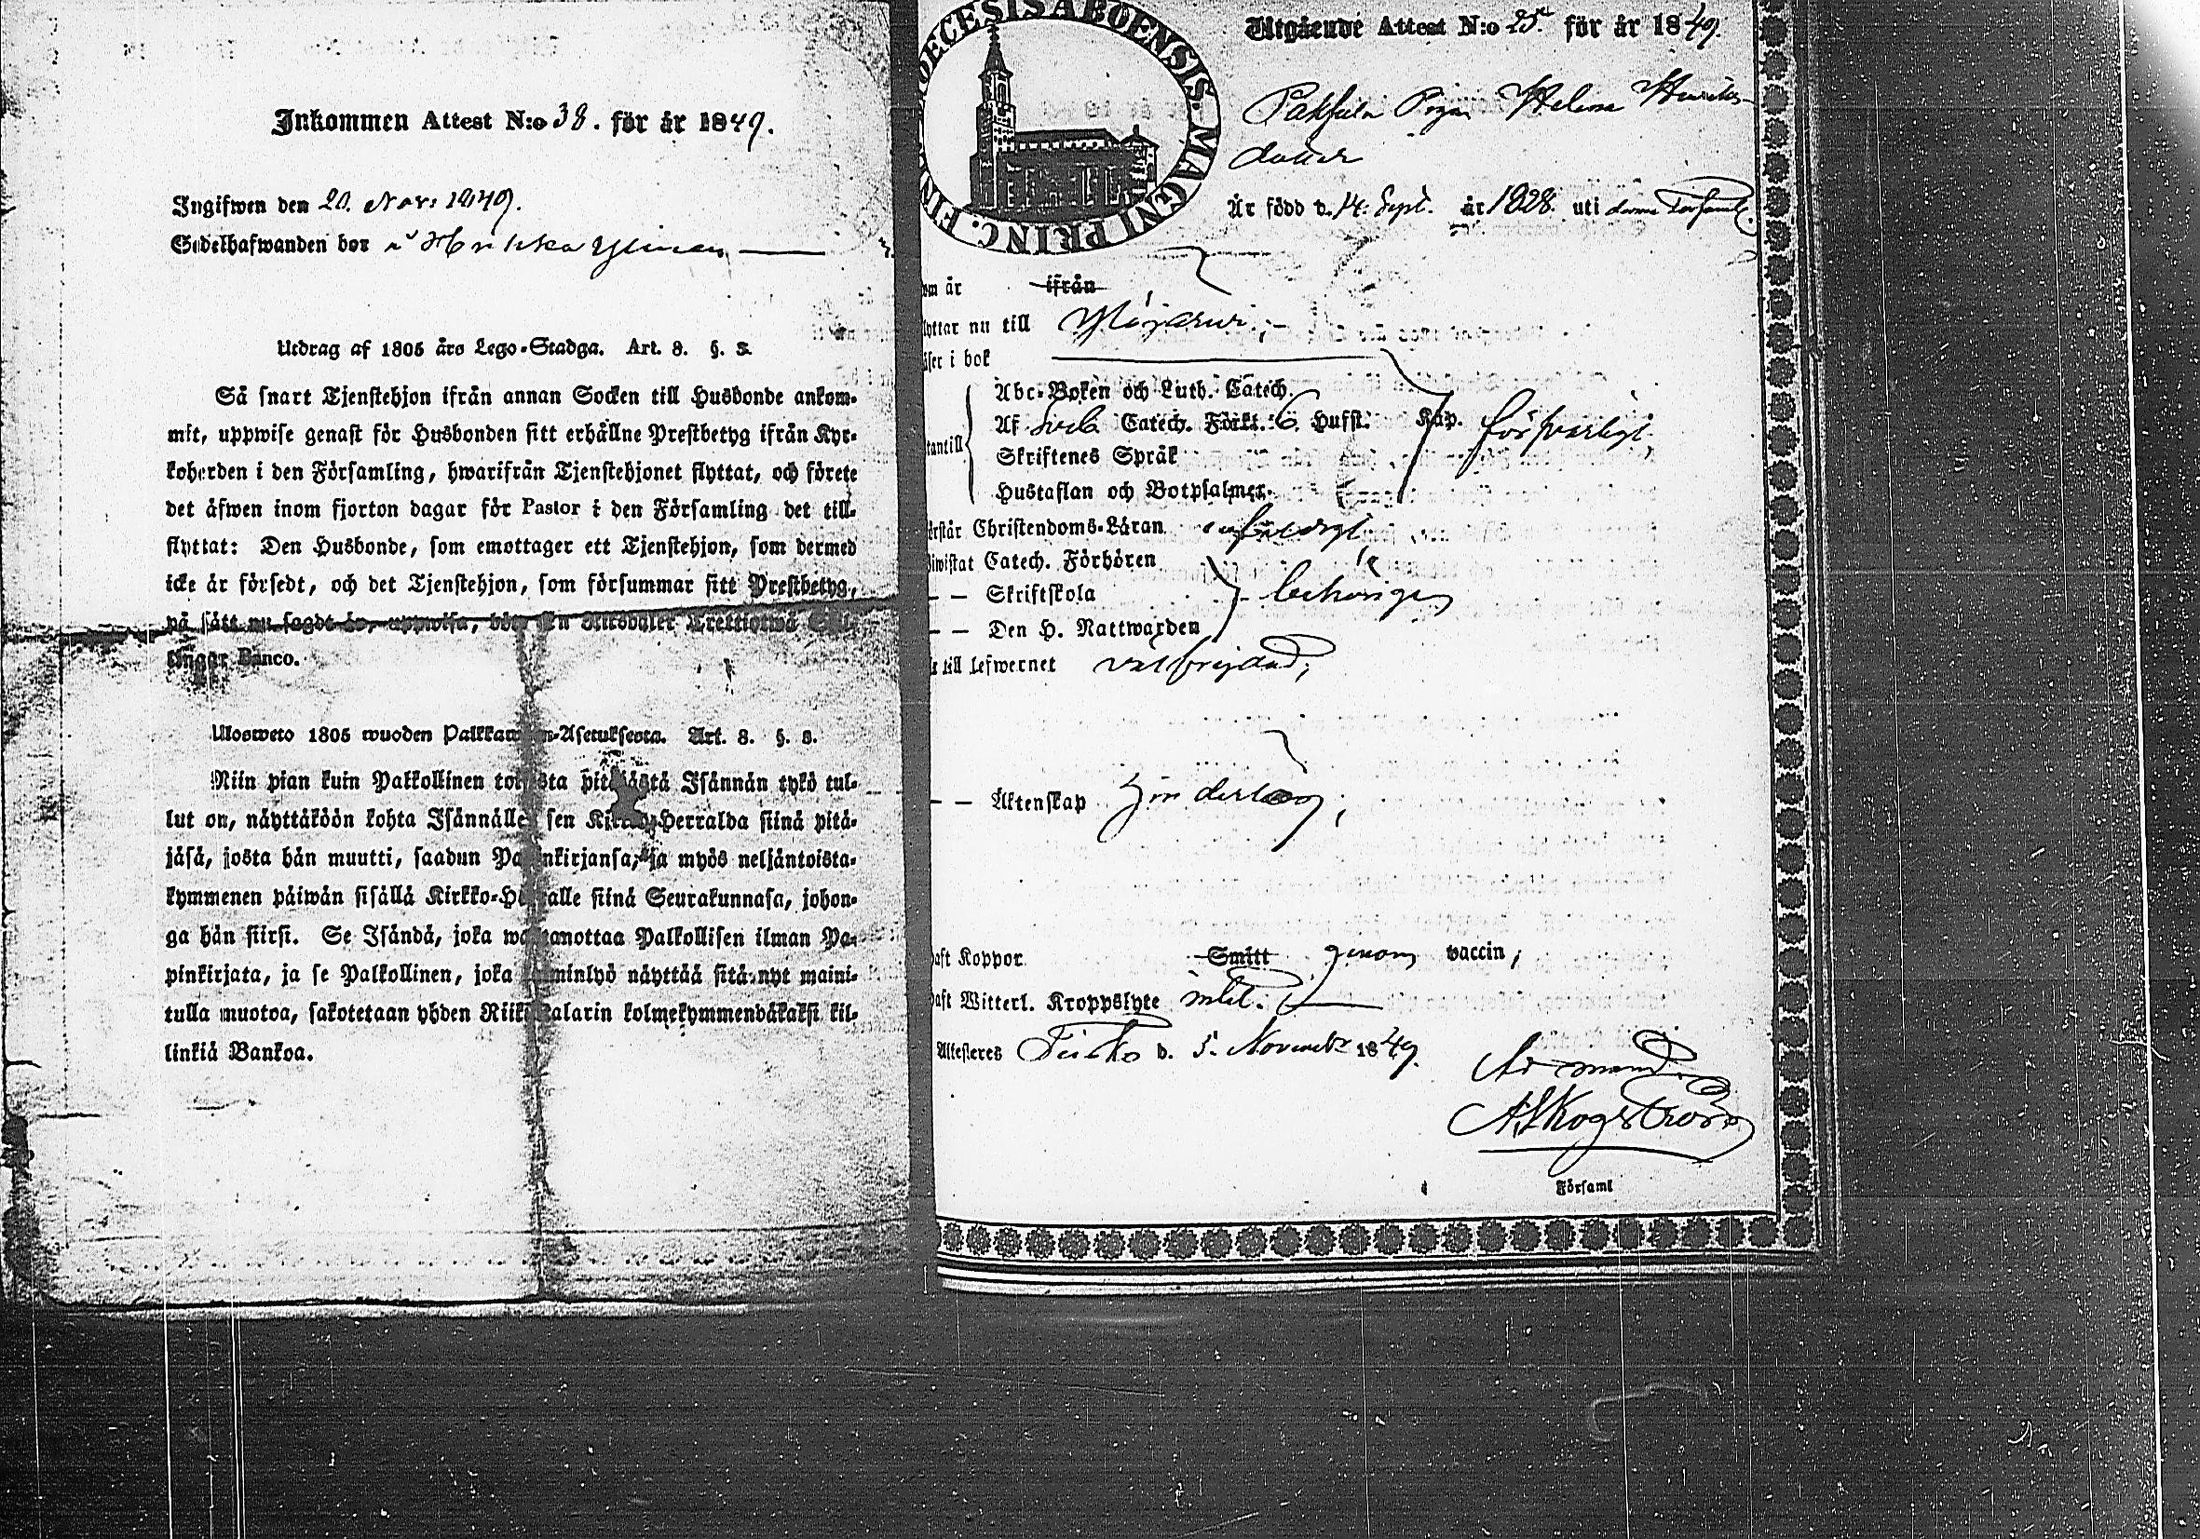 Inkommen Attest N:o 38. för år 1849.
Ingifwen den 20. Nov: 1849.
Sedelhafwanden bor å
Utdrag af 1805 års Lego-Stadga. Art. 8. §. 3.
Så snart Tjenstehjon ifrån annan Socken till Husbonde ankom-
mit, uppwise genast för Husbonden sitt erhållne Prestbetyg ifrån Kyr-
koherden i den Församling, hwarifrån Tjenstehjonet flyttat, och förete
det äfwen inom fjorton dagar för Pastor i den Församling det till-
flyttat: Den Husbonde, som emottager ett Tjenstehjon, som dermed
icke är försedt, och det Tjenstehjon, som försummar sitt Prestbetyg,
på sätt nu sagdt är, uppwisa, böte En Riksdaler Trettiotwå Skil-
lingar Banco.
Ulosweto 1805 wuoden Palkkawäen-Asetuksesta. Art. 8. §. 3.
Niin pian kuin Palkollinen toisesta pitäjästä Isännän tykö tul-
lut on, näyttäköön kohta Isännälle sen Kirkko-Herralda siinä pitä-
jäsä, josta hän muutti, saadun Papinkirjansa, ja myös neljäntoista-
kymmenen päiwän sisällä Kirkko-Herralle siinä Seurakunnasa, johon-
ga hän siirsi. Se Isändä, joka wastaanottaa Palkollisen ilman Pa-
pinkirjata, ja se Palkollinen, joka laiminlyö näyttää sitä nyt maini-
tulla muotoa, sakotetaan yhden Riikintalarin kolmekymmendäkaksi kil-
linkiä Bankoa.
DIOECESIS ABOENSIS. MAGNI PRINC. FINL
Utgående Attest N:o 25. för år 1849.
Pigan Helena Henriks-
dotter
Är född d. 14. Sept. år 1828. uti denna Församl.
om är ifrån
lyttar nu till
äser i bok
Abc-Boken och Luth. Catech.
Af Sveb Catech. Förkl. 6. Hufst. Kap. försvarligt;
tantill
Skriftenes Språk
Hustaflan och Botpsalmer.
örstår Christendoms-Läran
iwistat Catech. Förhören
— — Skriftskola behörigen
— — Den H. Nattwarden
r till Lefwernet välfrejdad;
— — Äktenskap hinderslös;
aft Koppor Smitt genom vaccin;
aft Witterl. Kroppslyte intet.
Attesteres d. 5. November 1849.
A. Skogström
Församl